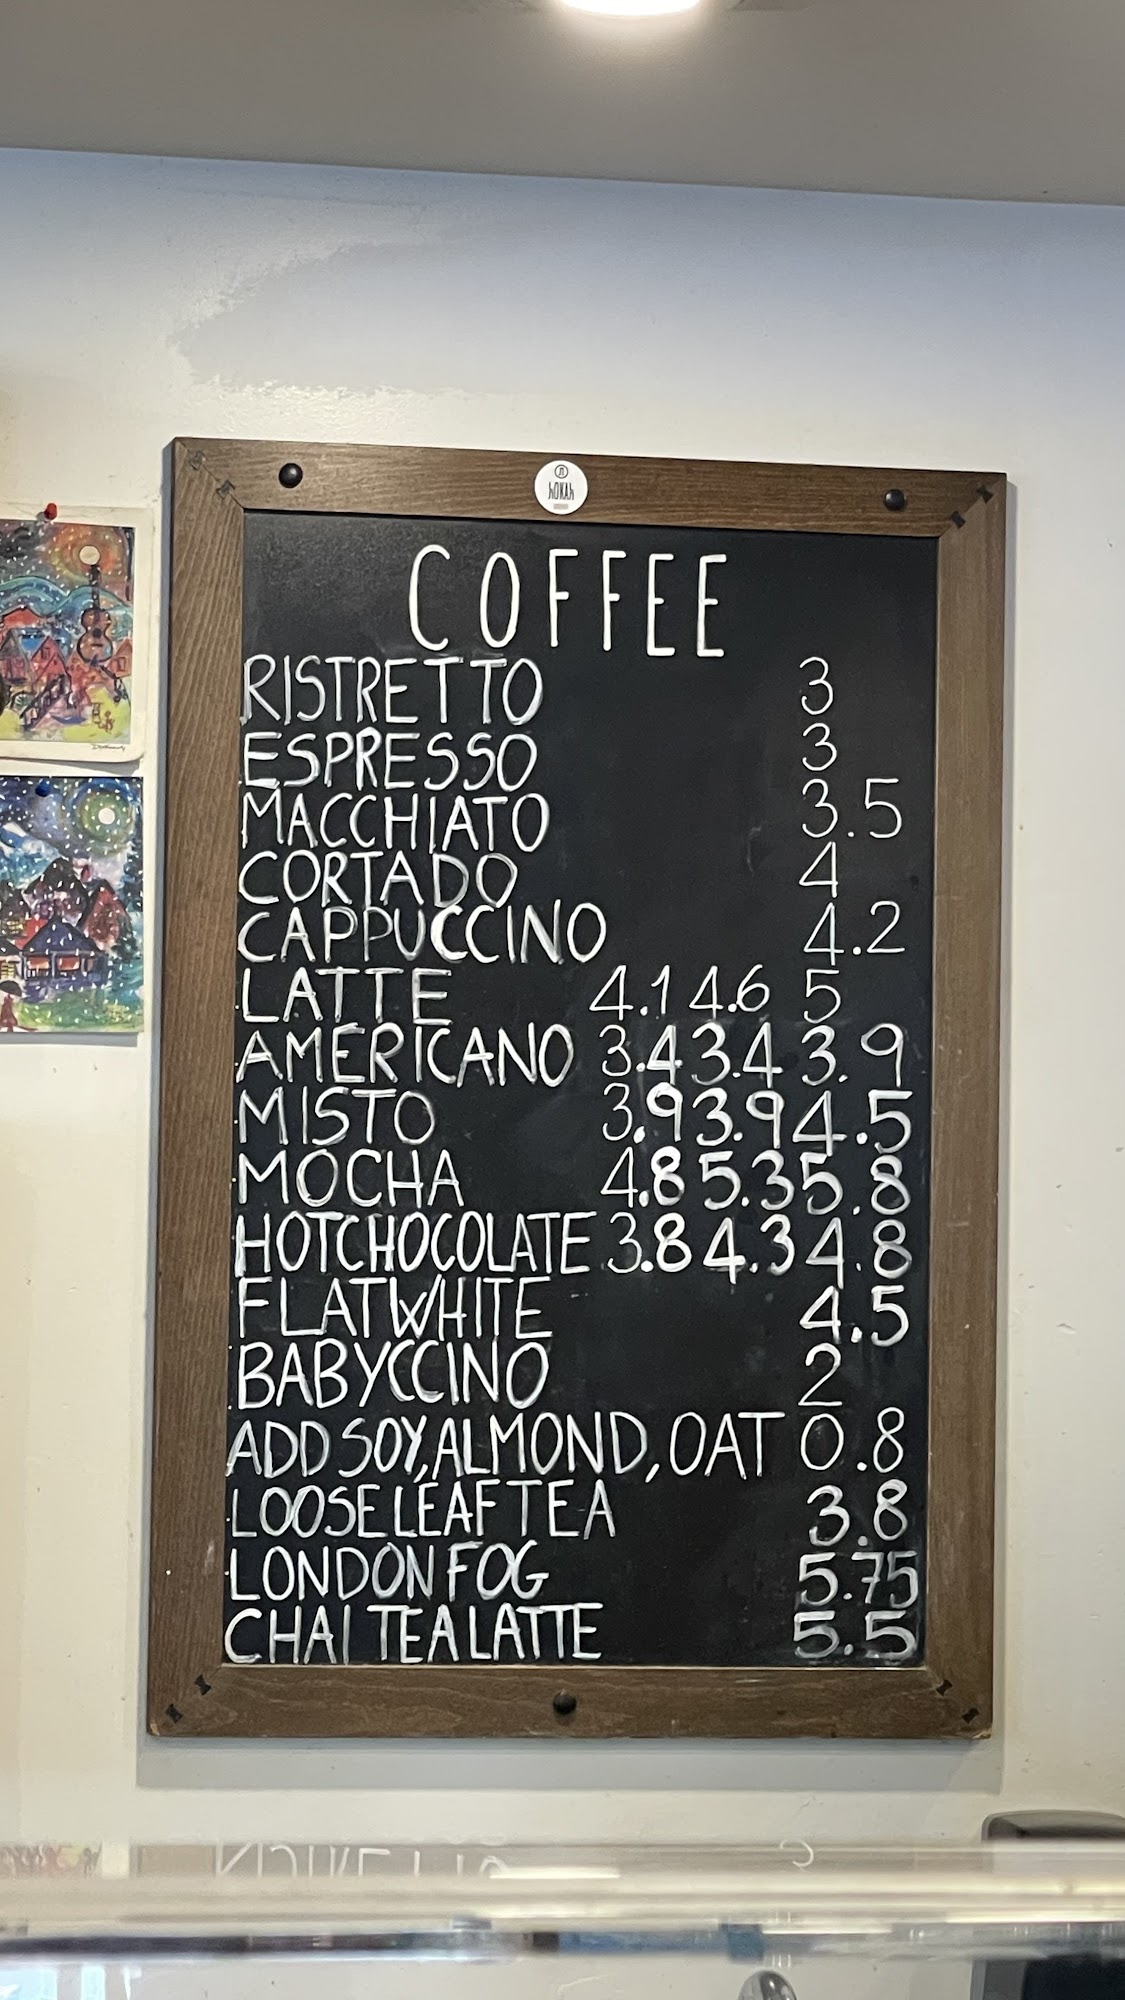 HOKAH
COFFEE
RISTRETTO 3
ESPRESSO 3
MACCHIATO 3.5
CORTADO 4
CAPPUCCINO 4.2
LATTE 4.1 4.6 5
AMERICANO 3.4 3.4 3.9
MISTO 3.9 3.9 4.5
MOCHA 4.8 5.3 5.8
HOT CHOCOLATE 3.8 4.3 4.8
FLAT WHITE 4.5
BABYCCINO 2
ADD SOY, ALMOND, OAT 0.8
LOOSE LEAF TEA 3.8
LONDON FOG 5.75
CHAI TEA LATTE 5.5